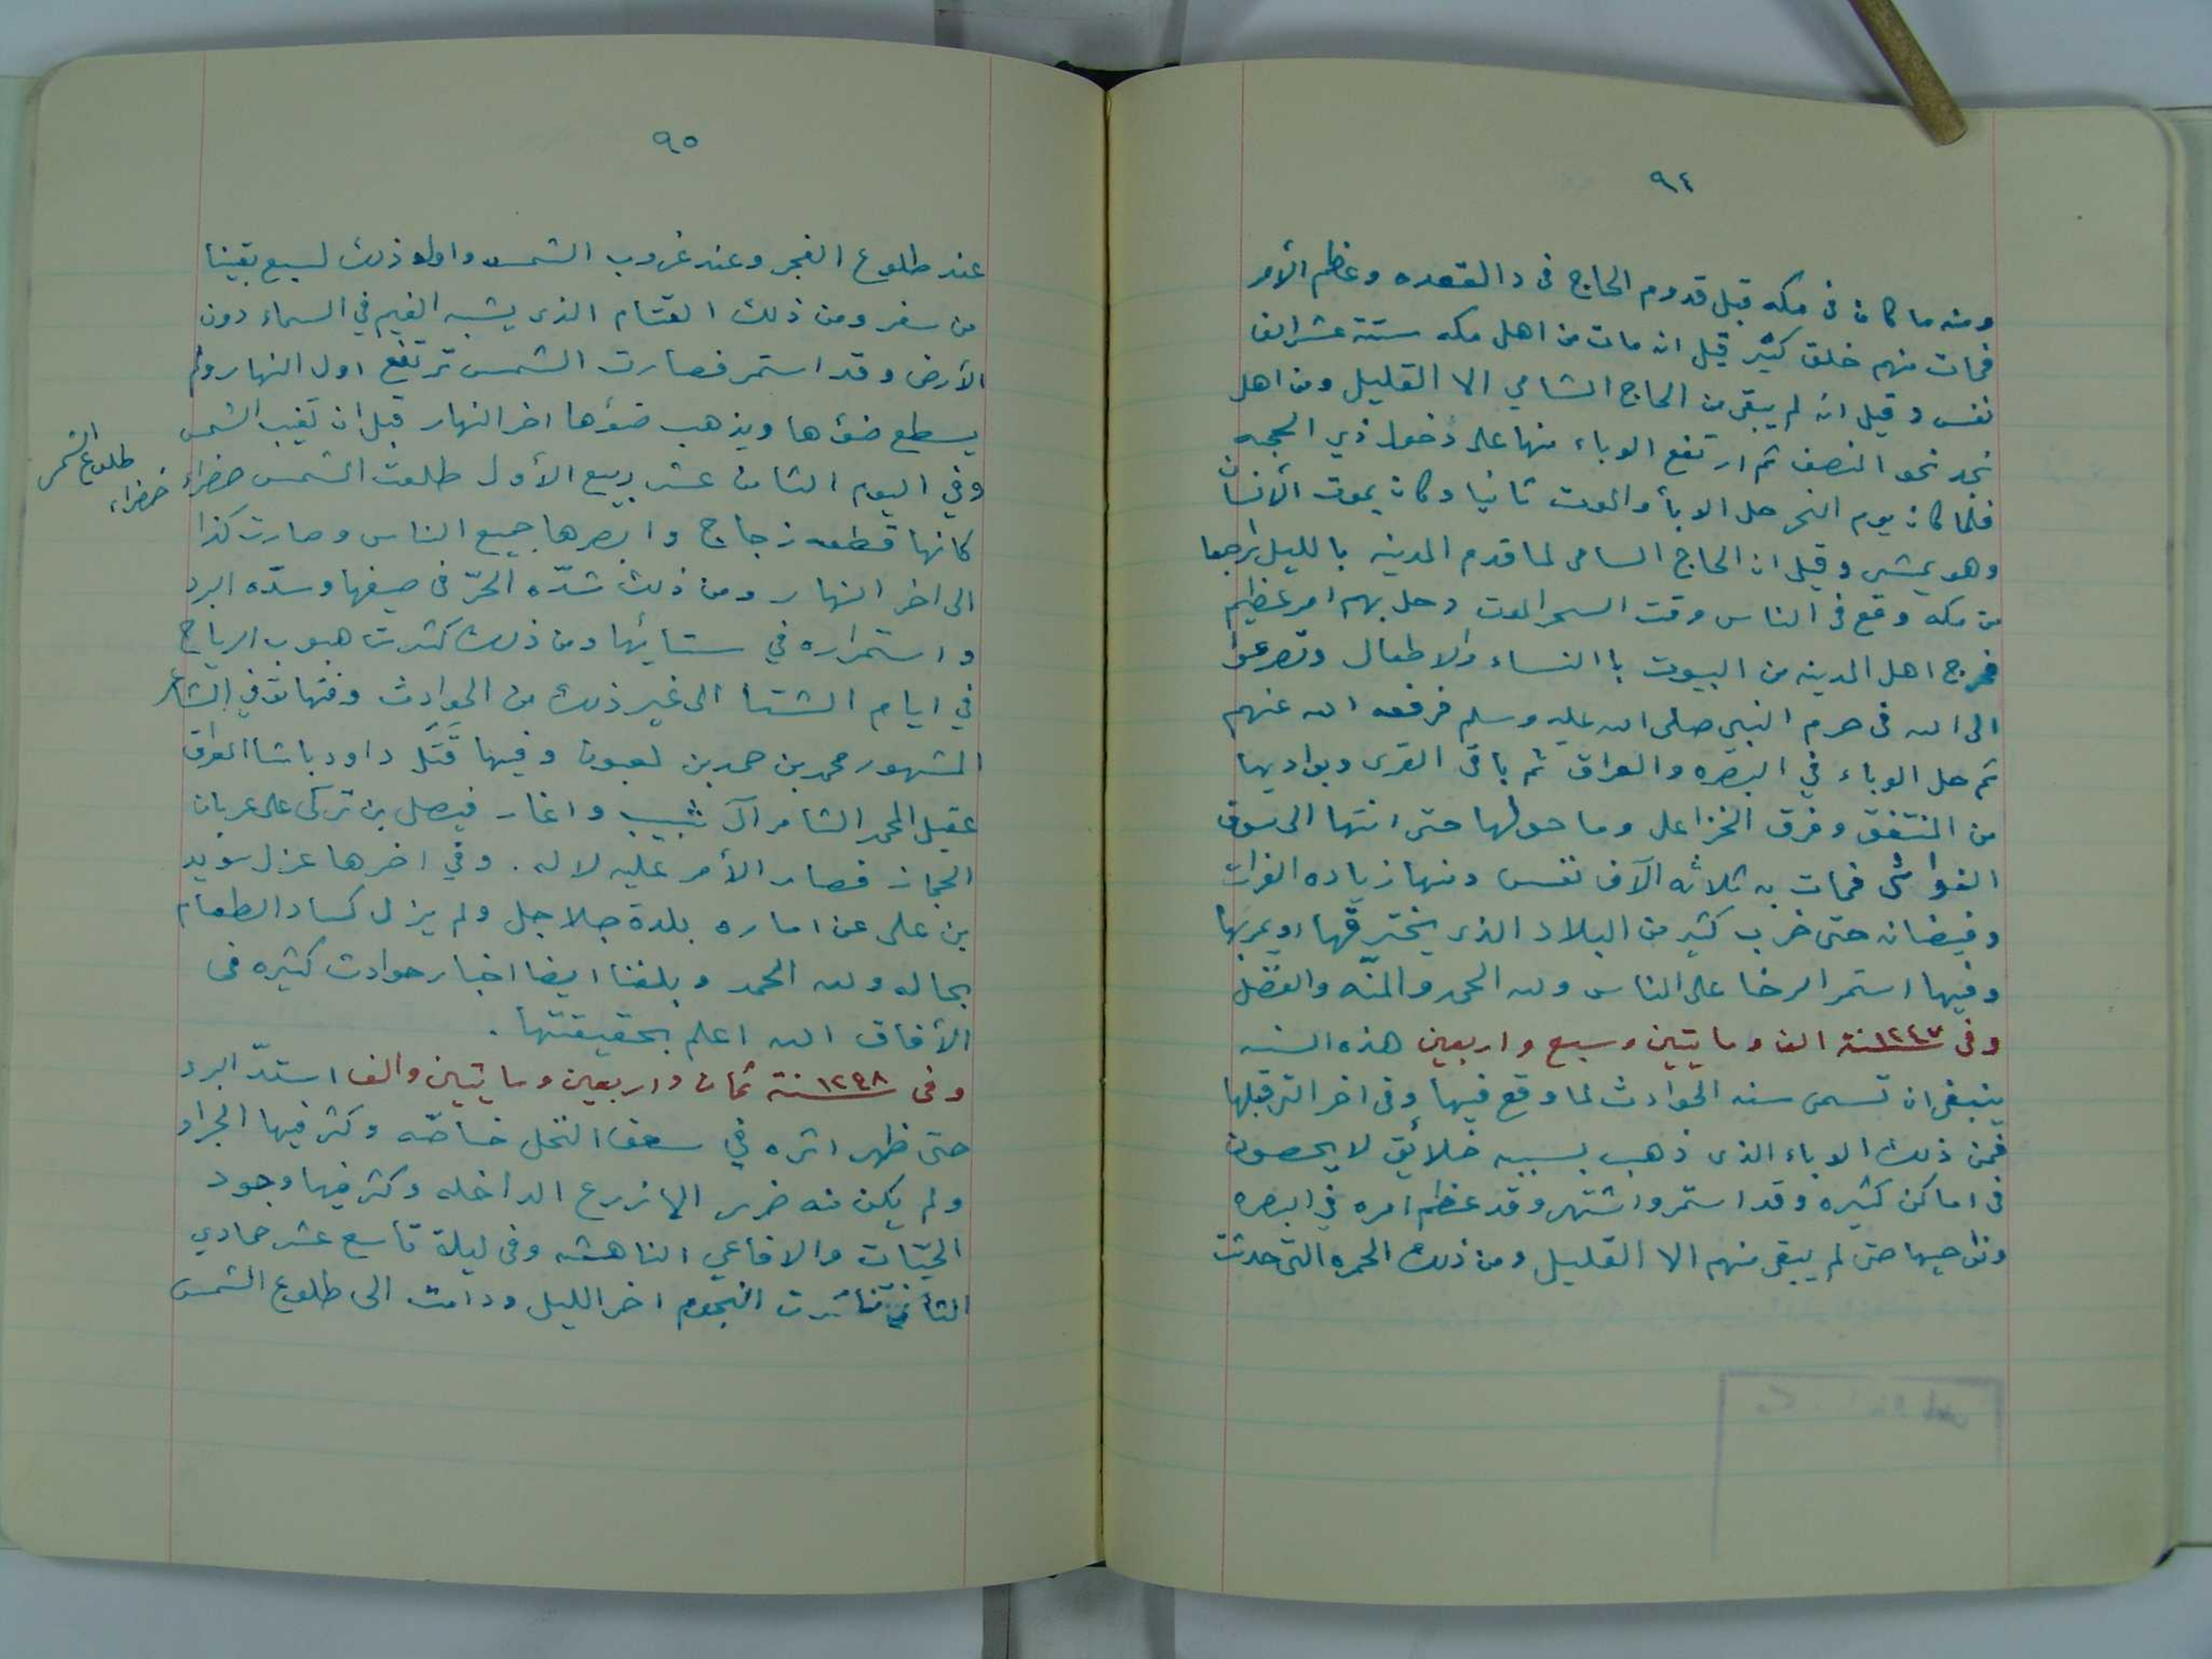 ٩٤
ومنه ما كان فى مكه قبل قدوم الحاج فى ذا القعده وعظم الأمر
فمات منهم خلق كثير قيل انه مات من اهل مكه ستة عشر الف
نفس وقيل انه لم يبقى من الحاج الشامي الا القليل ومن اهل
نجد نحو النصف ثم ارتفع الوباء منها على دخول ذي الحجه
فلما كان يوم النحر حل الوبأ والموت ثانيا وكان يموت الأنسان
وهو يمشي وقيل ان الحاج السامى لما قدم المدينه بالليل راجعا
من مكه وقع فى الناس وقت السحر الموت وحل بهم امر عظيم
فخرج اهل المدينه من البيوت باالنساء والاطفال وتضرعوا
الى الله فى حرم النبي صلى الله عليه وسلم فرفعه الله عنهم
ثم حل الوباء في البصره والعراق ثم باقى القرى وبواديها
من المنتفق وفرق الخزاعل وما حولها حتى انتها الى سوق
الفواشى فمات به ثلاثه الآف نفس ومنها زياده الفرات
وفيضانه حتى خرب كثير من البلاد الذى يخترقها او يمر بها
وفيها استمر الرخا على الناس ولله الحمد والمنّه والفضل
وفى ١٢٤٧سنة الف ومايتين وسبع واربعين هذه السنه
ينبغى ان تسمى سنه الحوادث لما وقع فيها وفى اخر التى قبلها
فمن ذلك الوباء الذى ذهب بسببه خلائق لا يحصون
فى اماكن كثيره وقد استمر واشتهر وقد عظم امره في البصره
ونواحيها حتى لم يبقى منهم الا القليل ومن ذلك الحمره التى حدثت
٩٥
عند طلوع الفجر وعند غروب الشمس واول ذلك لسبع بقينا
من سفر ومن ذلك القتام الذى يشبه الغيم في السماء دون
الأرض وقد استمر فصارت الشمس ترتفع اول النهار ولم
يسطع ضوءها ويذهب ضوءها اخر النهار قبل ان تغيب الشمس
وفي اليوم الثامن عشر ربيع الأول طلعت الشمس خضراء
كانها قطعه زجاج وابصرها جميع الناس وصارت كذا
الى اخر النهار ومن ذلك شدّه الحرّ فى صيفها وسدّه البرد
واستمراره في ستائها ومن ذلك كثرت هبوب الرياح
في ايام الشتا الى غير ذلك من الحوادث وفيها توفي الشاعر
المشهور محمد بن حمد بن لعبون وفيها قَتَل داود باشا العراق
عقيل المحمد الثامر آل شبيب واغار فيصل بن تركى على عربان
الحجاز فصار الأمر عليه لا له . وفي اخرها عزل سويد
بن على عن اماره بلدة جلاجل ولم يزل كساد الطعام
بحاله ولله الحمد وبلغنا ايضا اخبار حوادث كثيره فى
الأفاق الله اعلم بحقيقتها .
وفى ١٢٤٨سنة ثمان واربعين ومايتين والف استدّ البرد
حتى ظهر اثره في سعف النخل خاصّه وكثر فيها الجراد
ولم يكن منه ضرر الا زرع الداخله وكثر فيها وجود
الحيّات والافاعي الناهشه وفى ليلة تاسع عشر جمادي
الثاني تناثرت النجوم اخر الليل ودامت الى طلوع الشمس
طلوع الشمس
خضراء